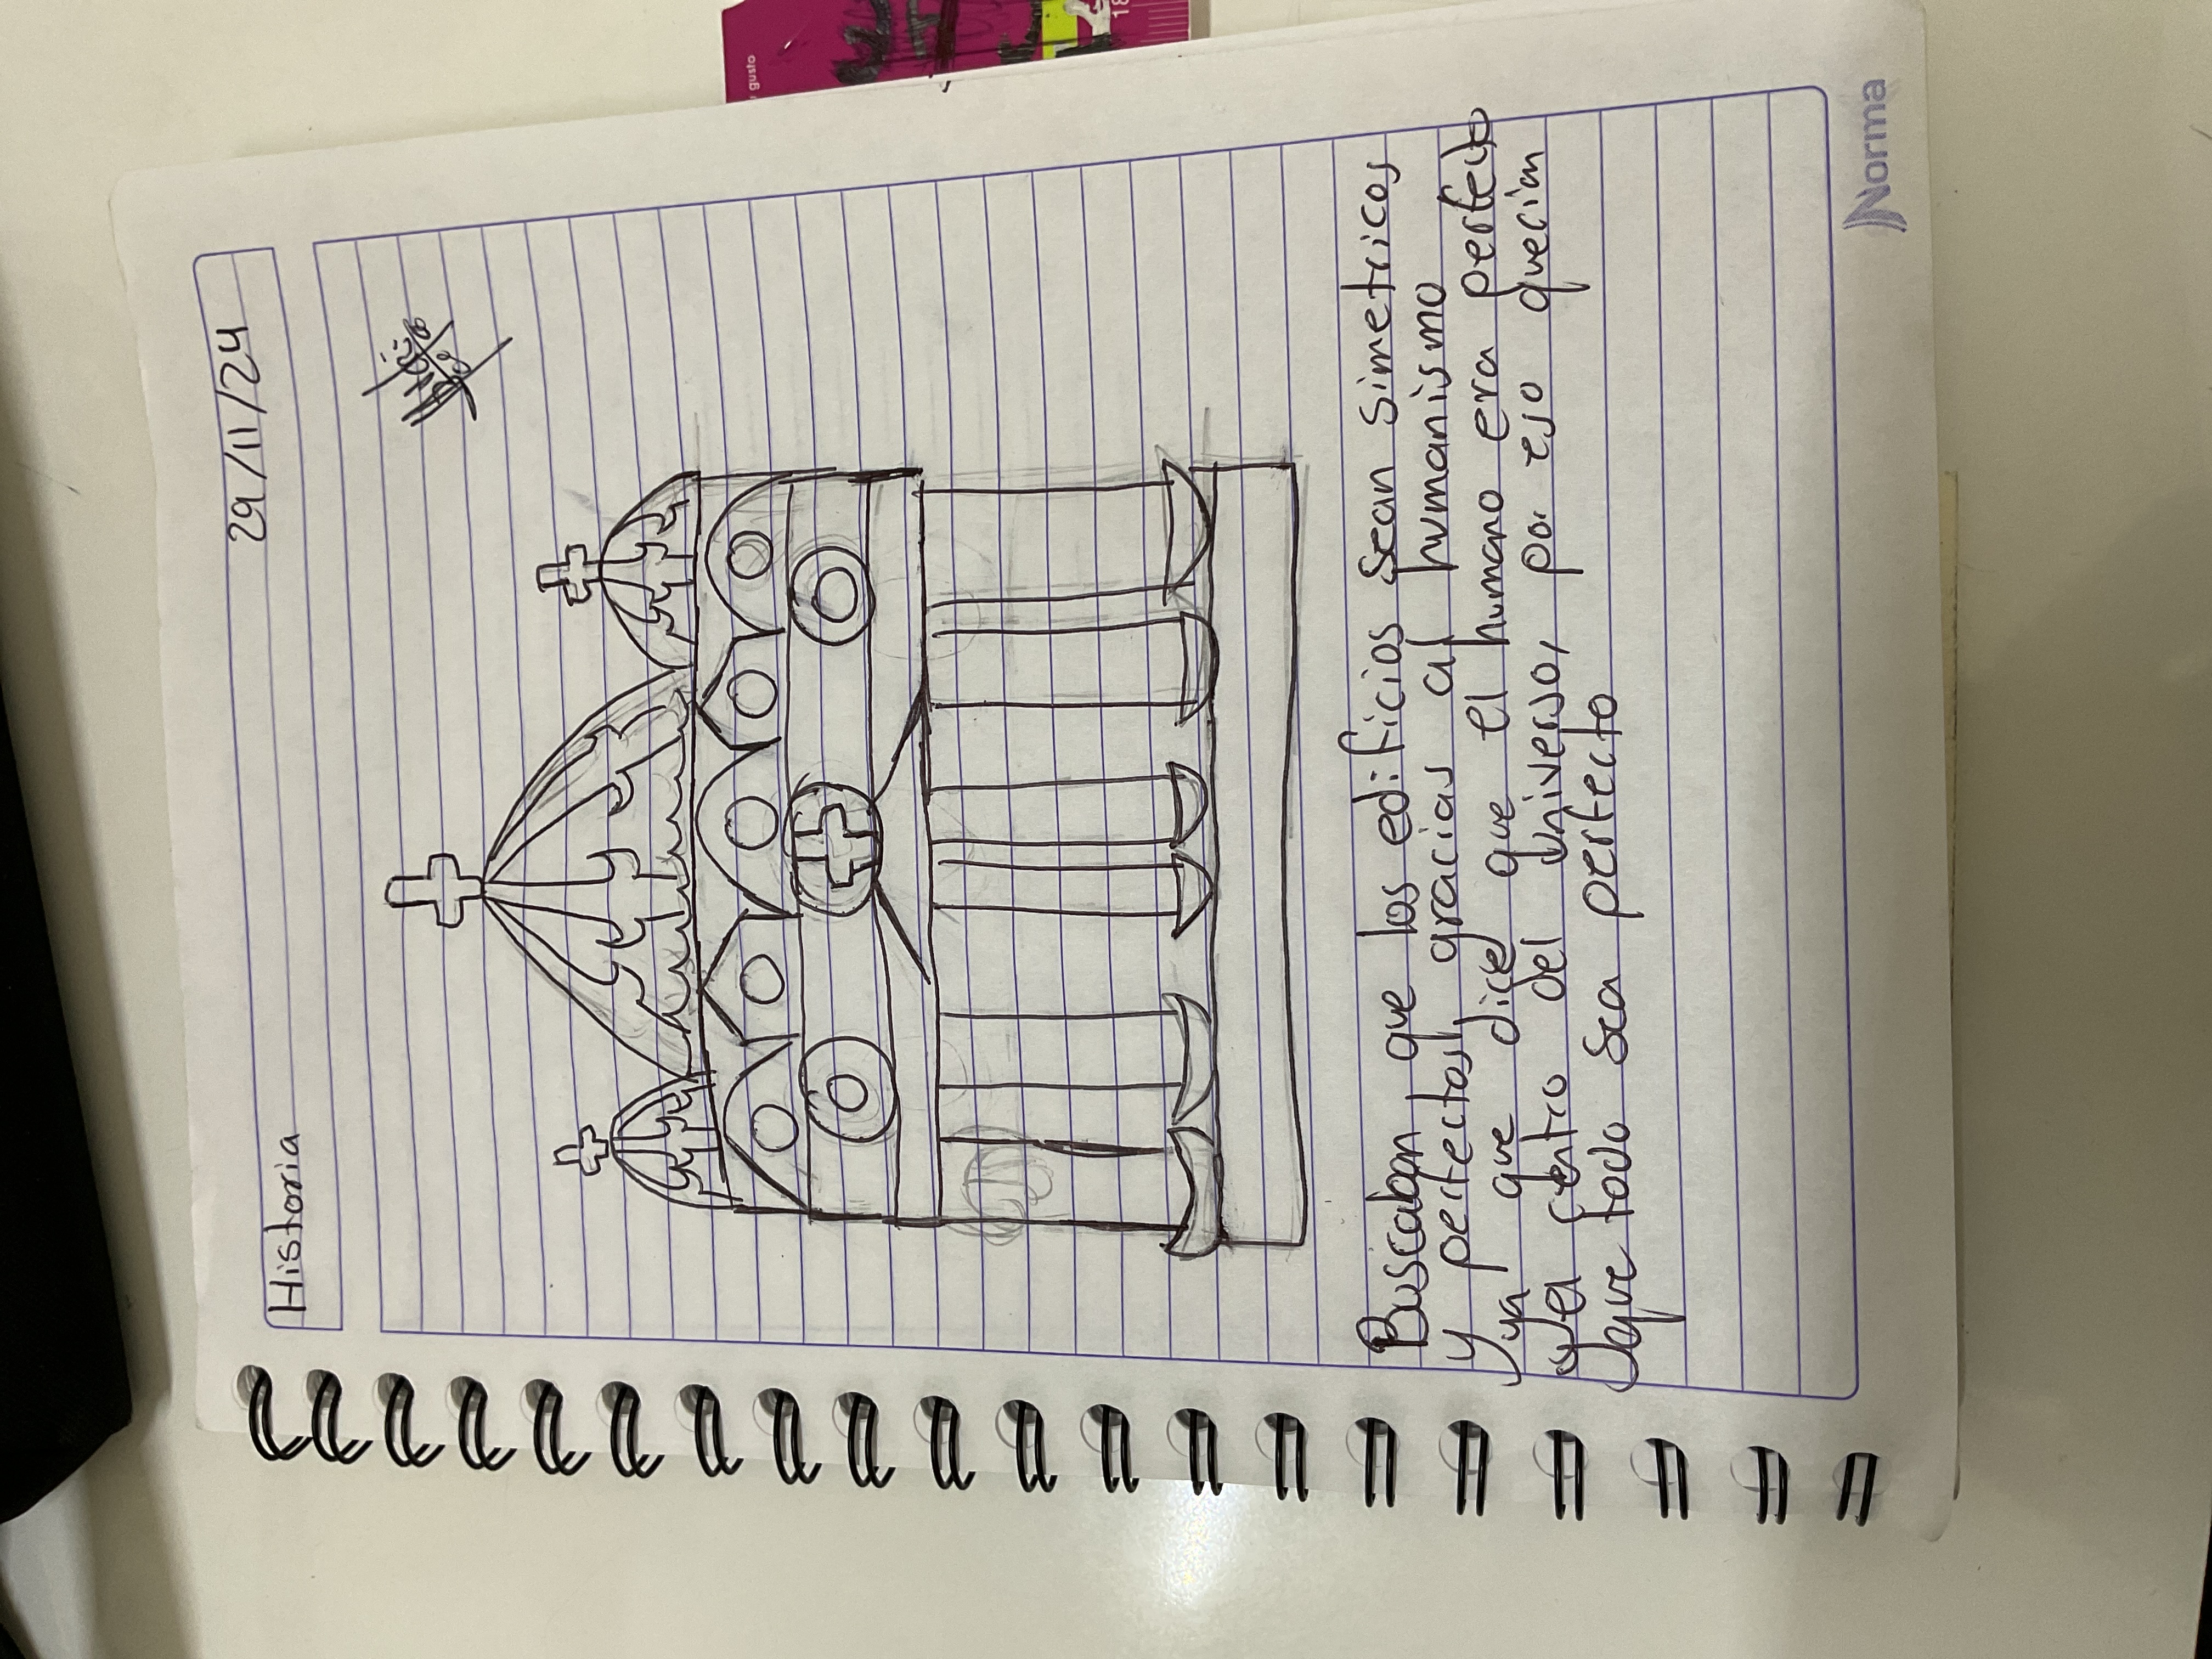 Historia
29/11/24
Buscaban que los edificios sean simetricos
y perfectos, gracias al humanismo
ya que dice que el humano era perfecto
y el centro del universo, por eso querian
que todo sea perfecto
Norma
gusto
18